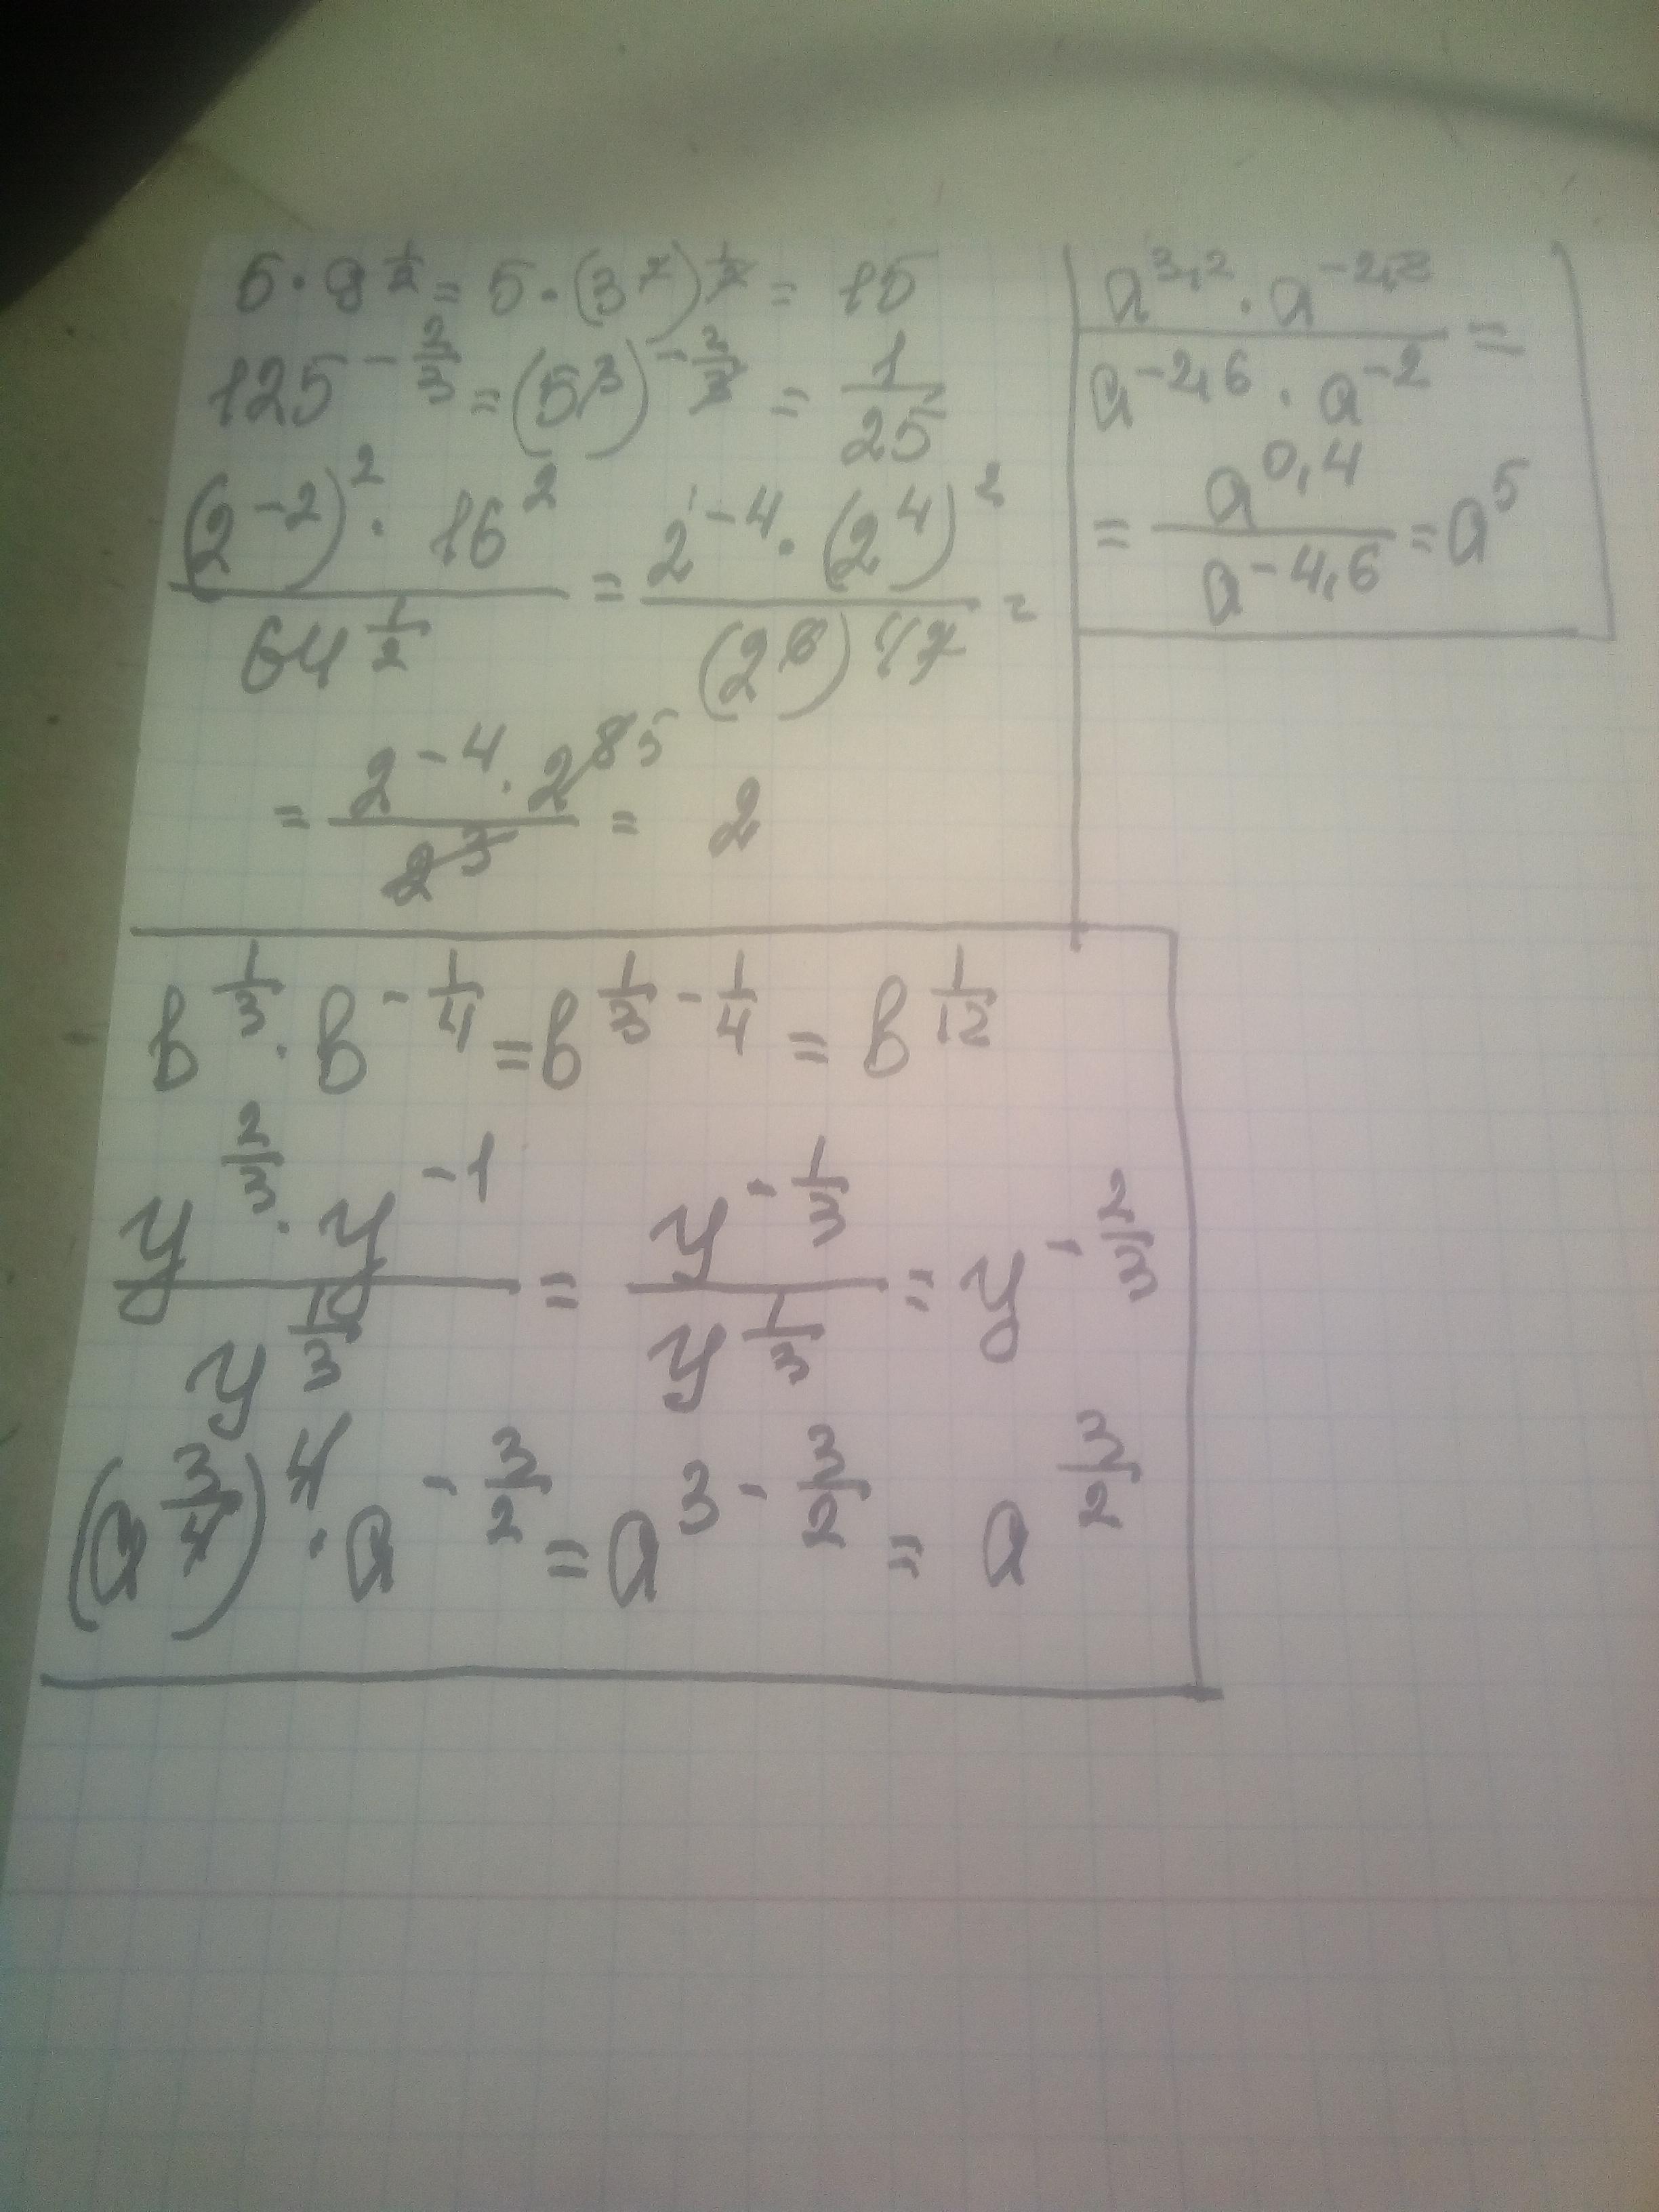 5 · 9^{1/2} = 5 · (3^2)^{1/2} = 15
125^{-2/3} = (5^3)^{-2/3} = 1/25
((2^{-2})^2 · 16^2)/(64^{1/2}) = (2^{-4} · (2^4)^2)/((2^6)^{1/2}) =
= (2^{-4} · 2^{8 5})/(2^3) = 2
(a^{3,2} · a^{-2,8})/(a^{-2,6} · a^{-2}) =
= a^{0,4}/a^{-4,6} = a^5
в^{1/3} · в^{-1/4} = в^{1/3 - 1/4} = в^{1/12}
(y^{2/3} · y^{-1})/(y^{1/3}) = y^{-1/3}/y^{1/3} = y^{-2/3}
(a^{3/4})^4 · a^{-3/2} = a^{3 - 3/2} = a^{3/2}